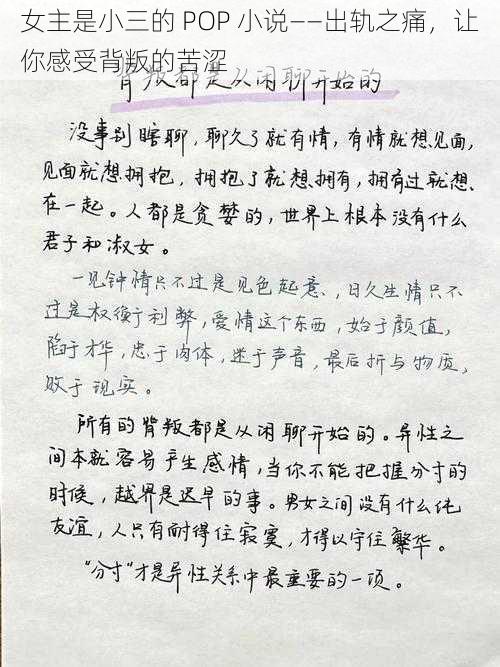 女主是小三的 POP 小说——出轨之痛，让
你感受背叛的苦涩
背叛都是从闲聊开始的
没事别瞎聊，聊久了就有情，有情就想见面，
见面就想拥抱，拥抱了就想拥有，拥有过就想
在一起。人都是贪婪的，世界上根本没有什么
君子和淑女。
一见钟情只不过是见色起意，日久生情只不
过是权衡利弊，爱情这个东西，始于颜值，
陷于才华，忠于肉体，迷于声音，最后折与物质，
败于现实。
所有的背叛都是从闲聊开始的。异性之
间本就容易产生感情，当你不能把握分寸的
时候，越界是迟早的事。男女之间没有什么纯
友谊，人只有耐得住寂寞，才得以守住繁华。
“分寸”才是异性关系中最重要的一项。